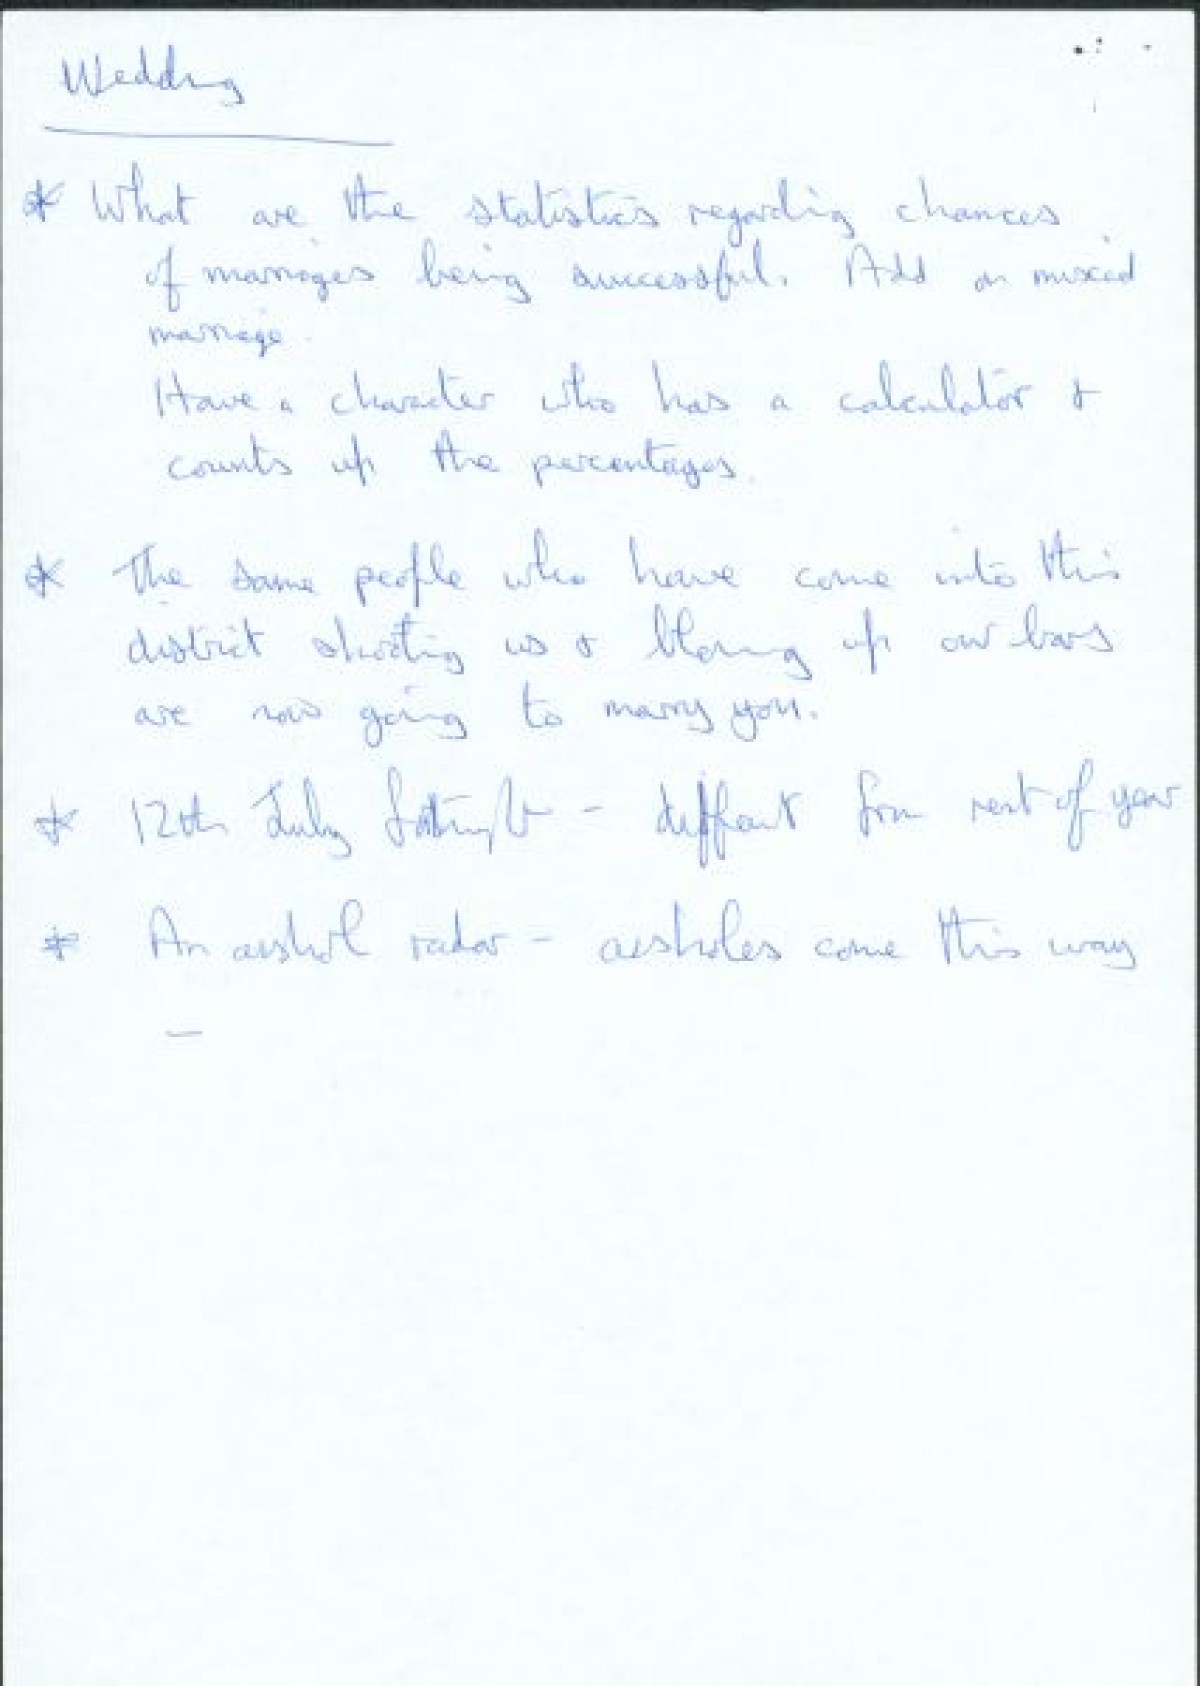 Wedding
* What are the statistics regarding chances
of marriages being successful. Add on mixed
marriage.
Have a character who has a calculator &
counts up the percentages.
* The same people who have come into this
district shooting us & blowing up our bars
are now going to marry you.
* 12th July fortnight - different from rest of year
* An arshol radar - arsholes come this way
-